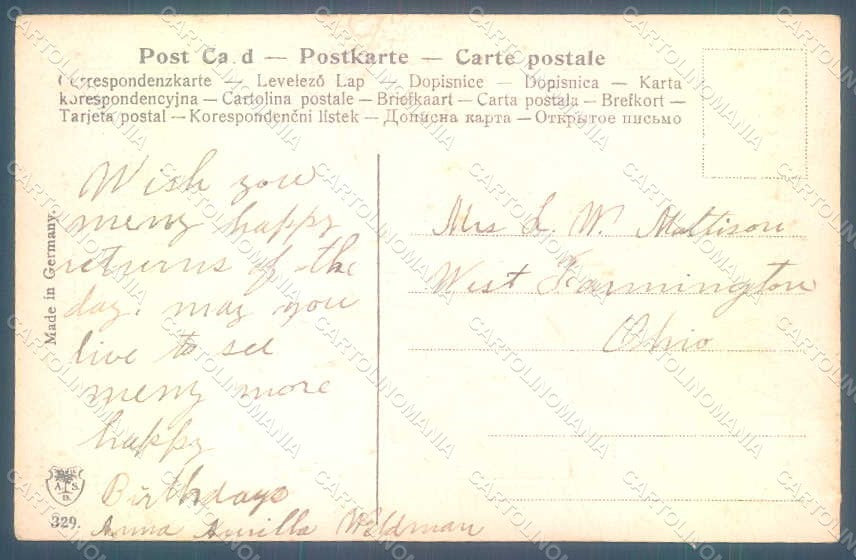 Post Ca d — Postkarte — Carte postale
Correspondenzkarte — Levelező Lap — Dopisnice — Dopisnica — Karta
korespondencyjna — Cartolina postale — Briefkaart — Carta postala — Brefkort —
Tarjeta postal — Korespondenční lístek — Дописна карта — Открытое письмо
Wish you
meny happy
returns of the
day. may you
live to see
meny more
happy
Birthdays
Anna Aurilla Wildman
Mrs L. W. Mattison
West Farmington
Ohio
Made in Germany.
A. S.
B.
329.
CARTOLINOMANIA